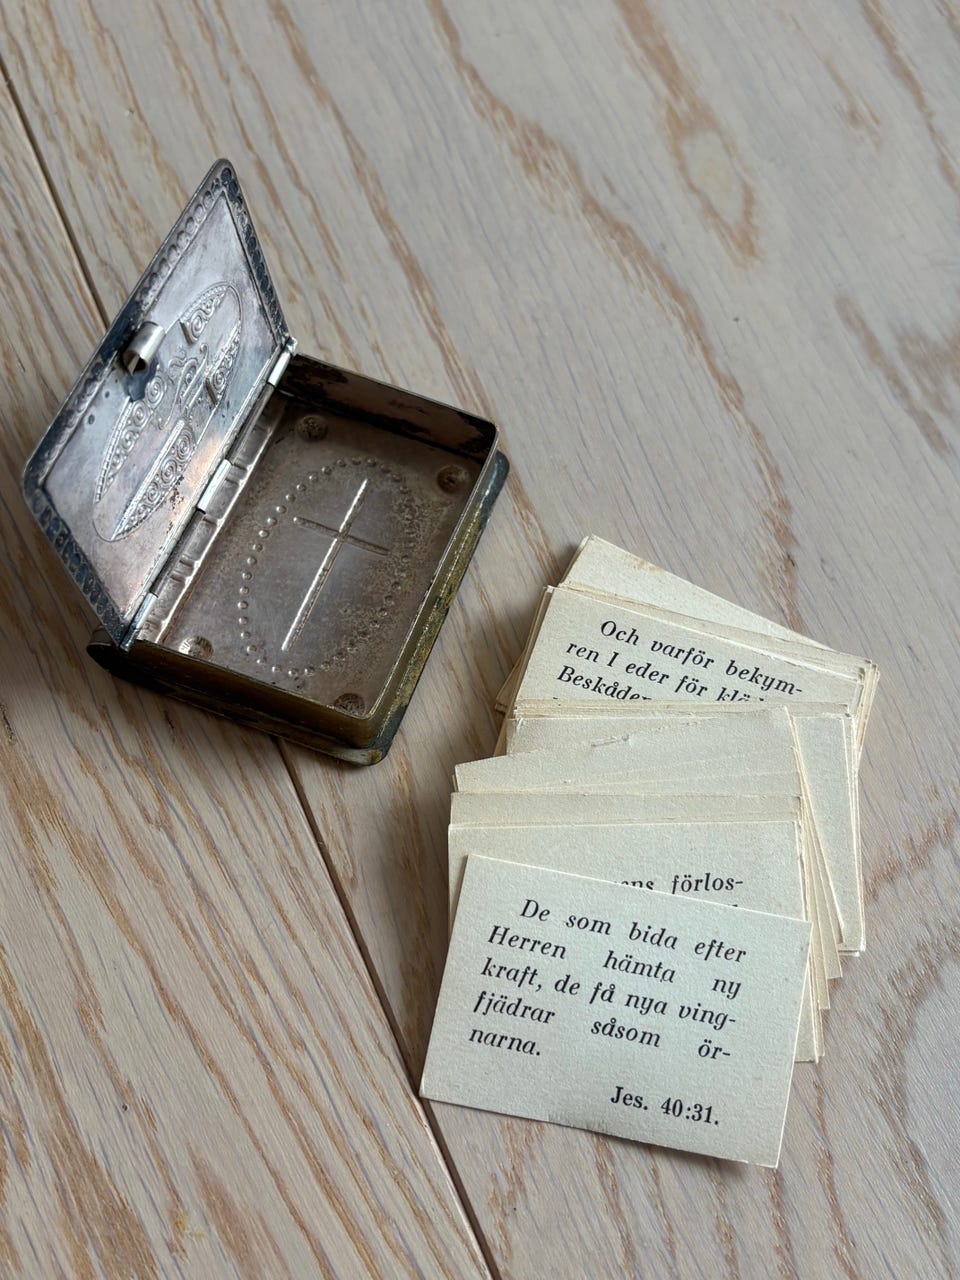 Och varför bekym-
ren I eder för
Beskåden
förlos-
De som bida efter
Herren hämta ny
kraft, de få nya ving-
fjädrar såsom ör-
narna.
Jes. 40:31.